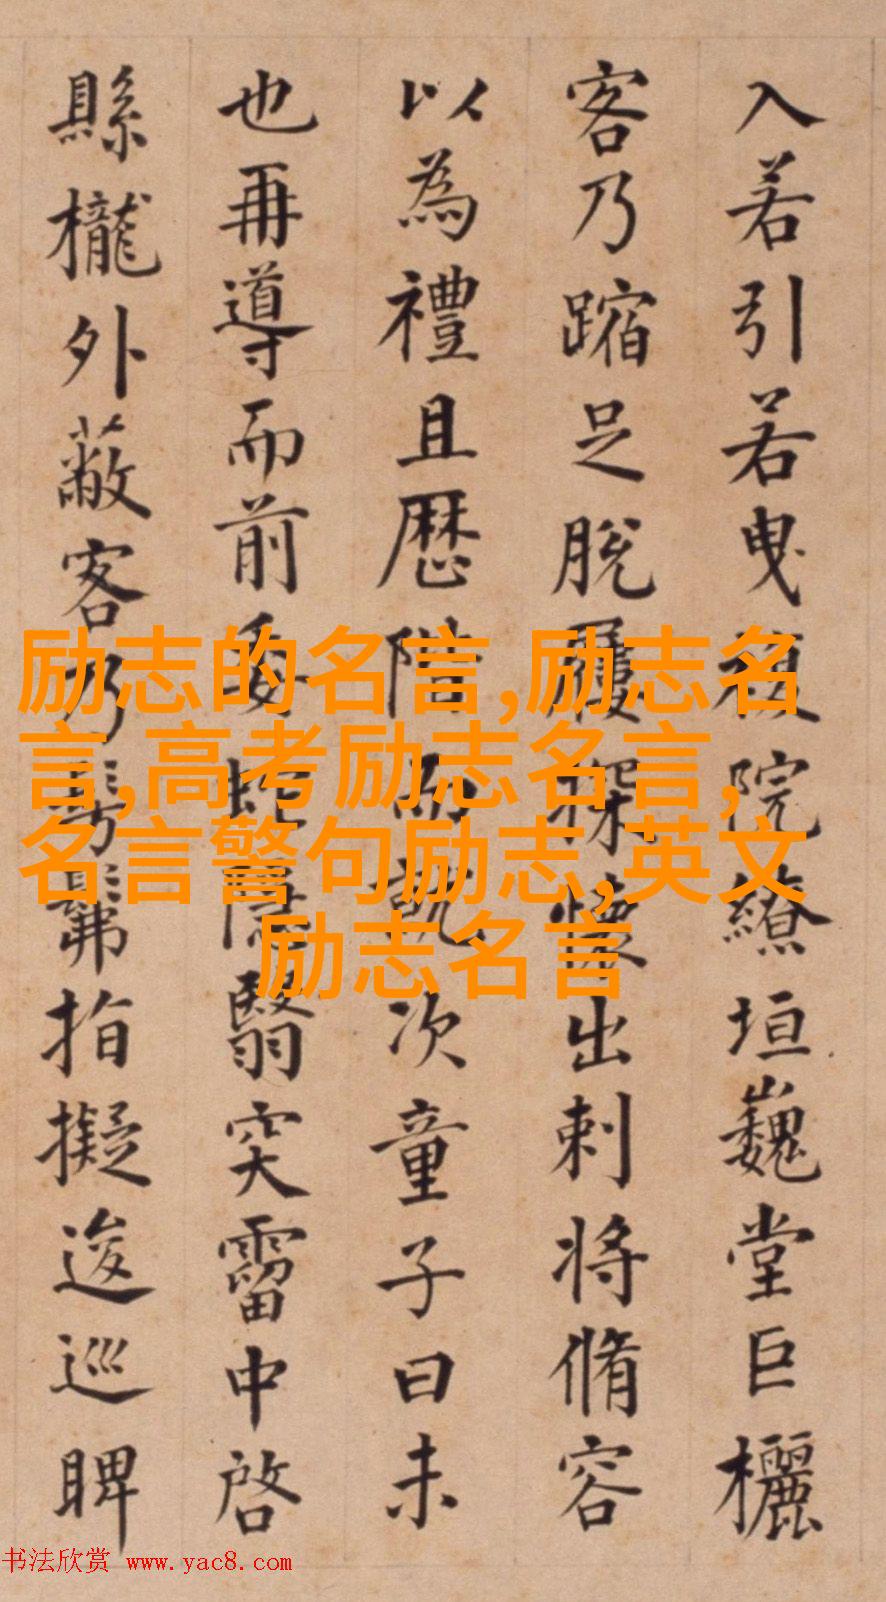 入若引若曳複院繚垣巍堂巨欐
客乃蹜足脫屨探懷出刺將脩容
以為禮且歷階而就次童子曰未
也再導而前委蛇隱翳突霤中啓
縣櫳外蔽客乃髣髴指擬逡巡睥
励志的名言,励志名
言,高考励志名言,
名言警句励志,英文
励志名言
书法欣赏 www.yac8.com